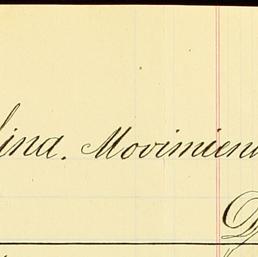 ina. Movimien